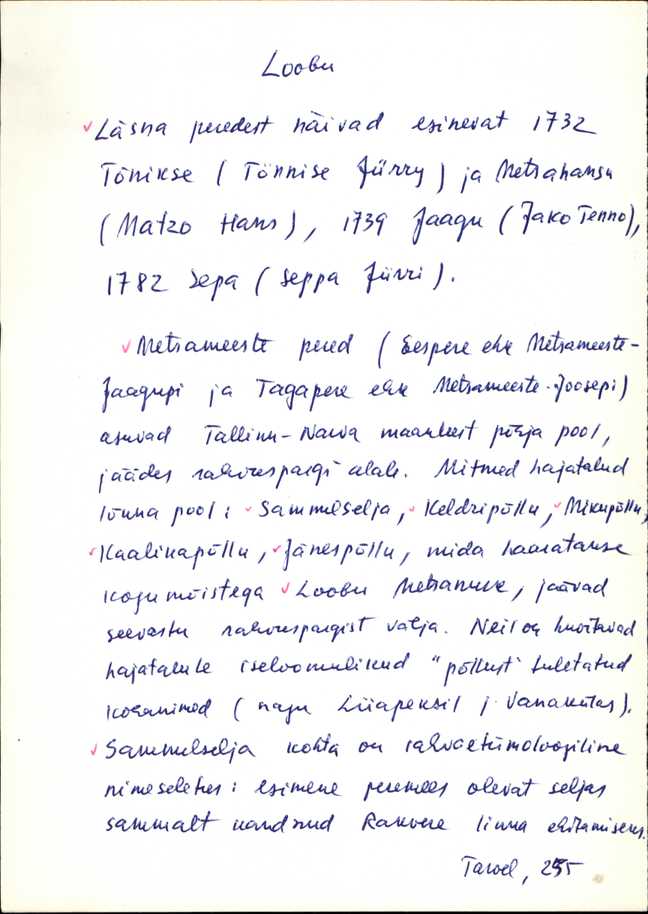 Loobu
Läsna peredest näivad esinevat 1732
Tõnikse (Tönnise Jürry) ja Metsahansu
(Matzo Hans), 1739 Jaagu (Jako Tenno),
1782 Sepa (Seppa Jürri).
Metsameeste pered (Eespere ehk Metsameeste-
Jaagupi ja Tagapere ehk Metsameeste-Joosepi)
asuvad Tallinn-Narva maanteest põhja pool,
jäädes rahvuspargi alale. Mitmed hajatalud
lõuna pool: Sammelselja, Keldripõllu, Mikupõllu,
Kaalikapõllu, Jänespõllu, mida haaratakse
kogumõistega Loobu Metsanuka, jäävad
seevastu rahvuspargist välja. Neil on huvitavad
hajatalule iseloomulikud "põllust" tuletatud
kohanimed (nagu Liiapeksil j Vanakülas).
Sammelselja kohta on rahvaetümoloogiline
nimeseletus: esimene peremees olevat seljas
sammalt kandnud Rakvere linna ehitamiseks.
Tarvel, 255